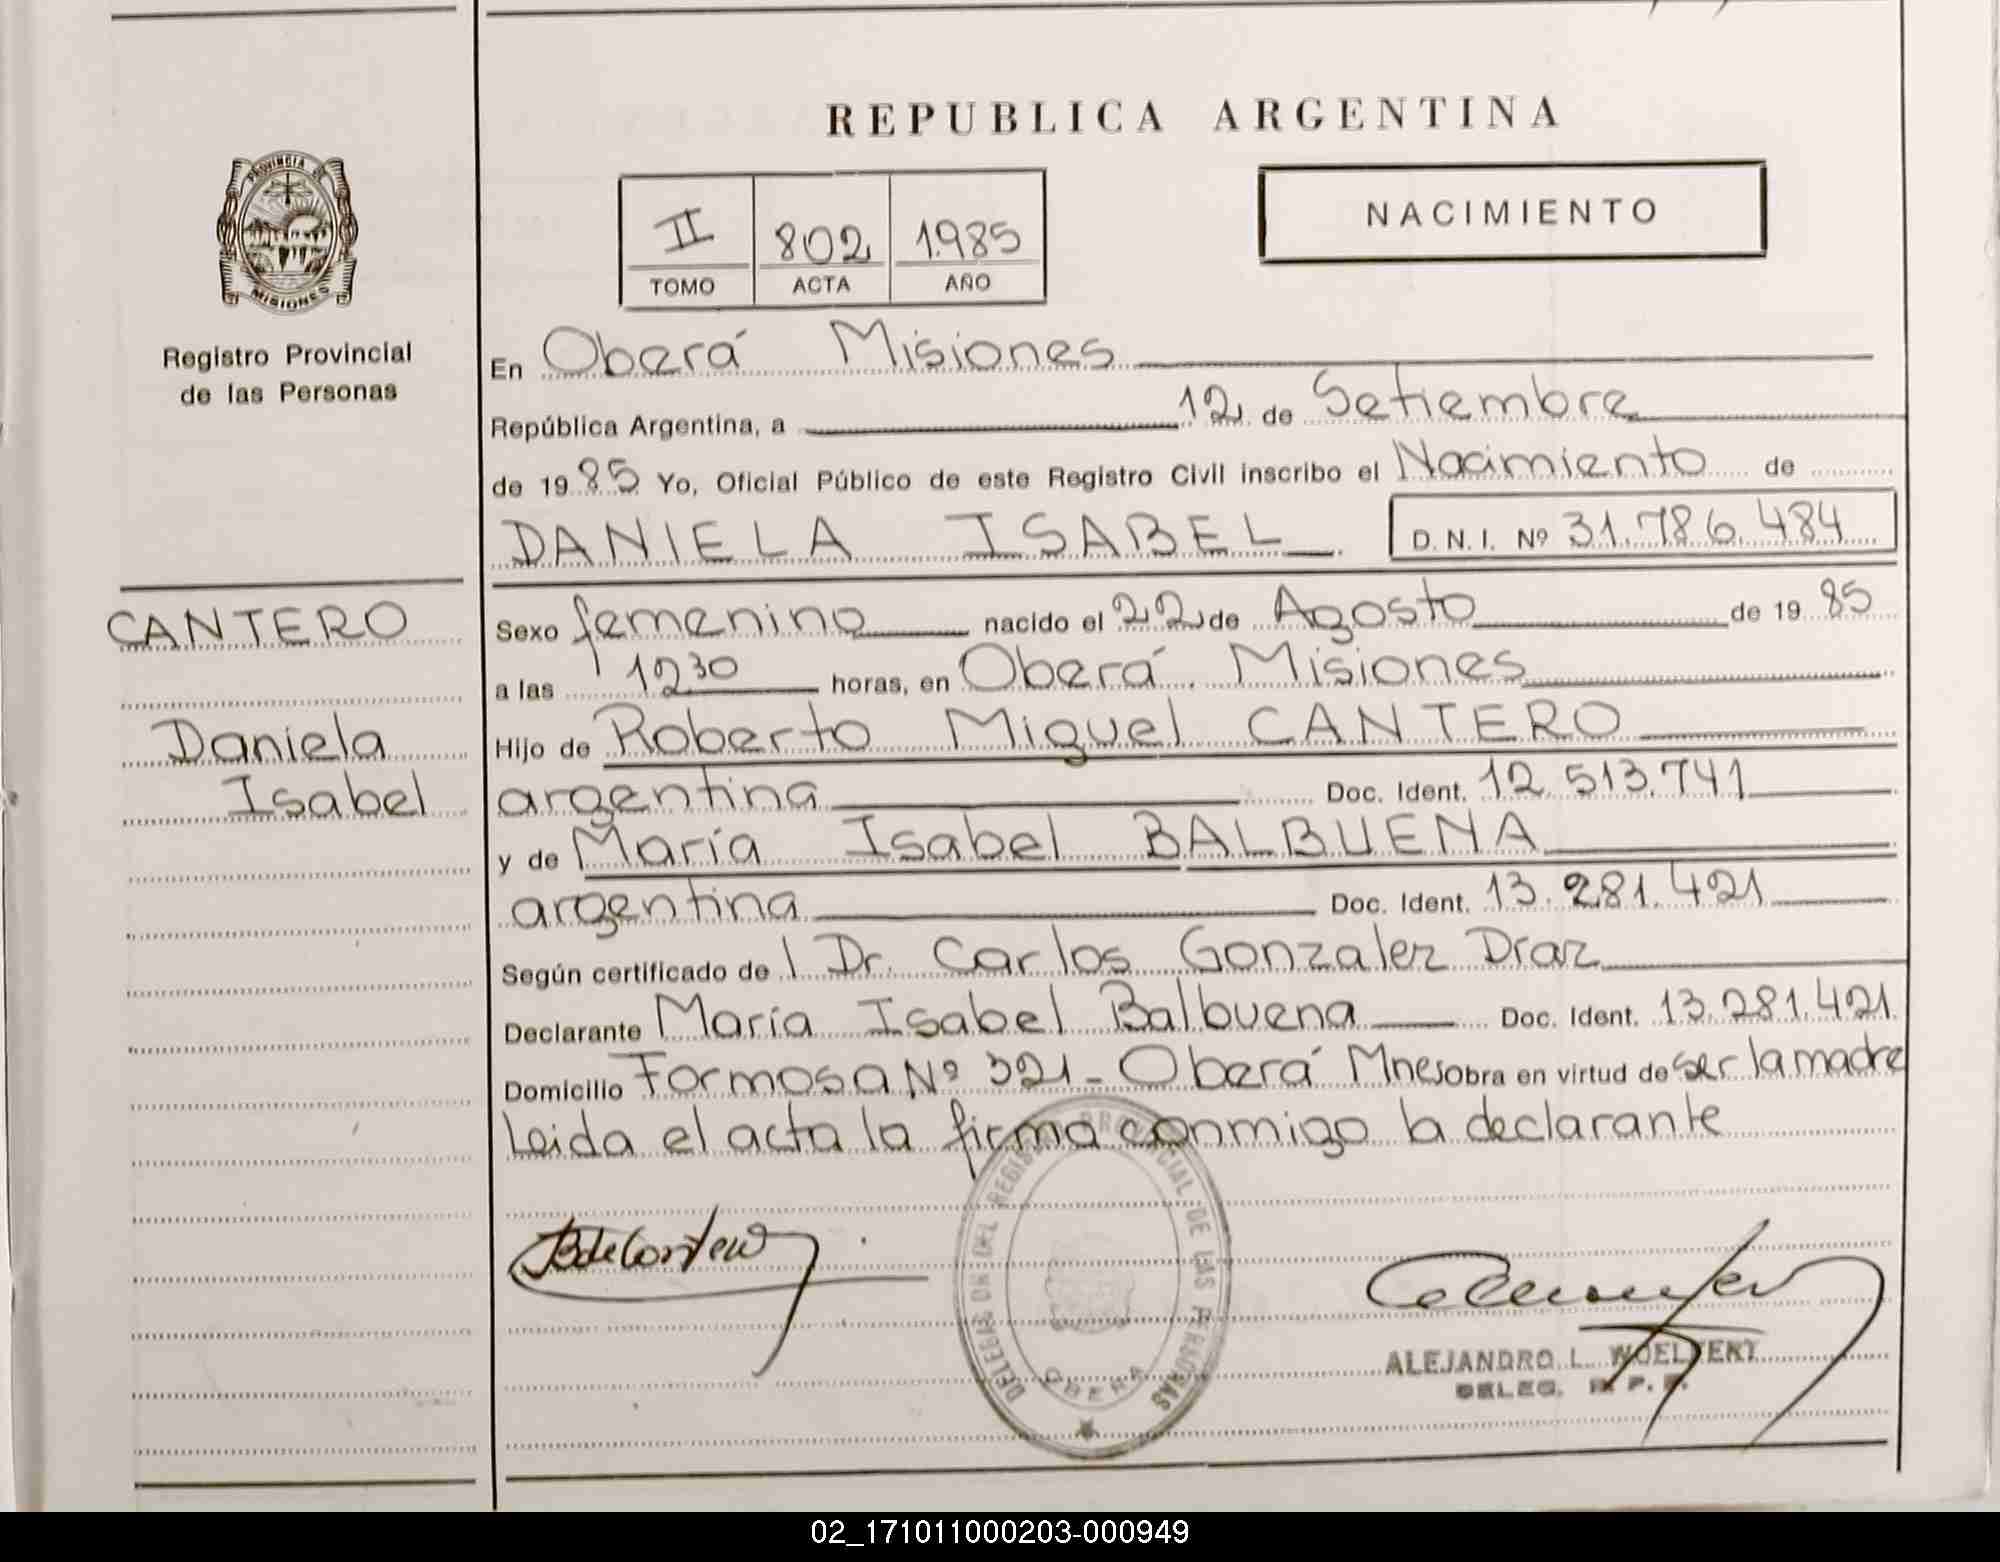 REPUBLICA ARGENTINA
PROVINCIA DE
MISIONES
Registro Provincial
de las Personas
II 802 1985
TOMO ACTA AÑO
NACIMIENTO
En Oberá Misiones
República Argentina, a 12 de Setiembre
de 1985 Yo, Oficial Público de este Registro Civil inscribo el Nacimiento de
DANIELA ISABEL D.N.I. Nº 31.786.484
CANTERO
Daniela
Isabel
Sexo femenino nacido el 22 de Agosto de 1985
a las 12 30 horas, en Oberá Misiones
Hijo de Roberto Miguel CANTERO
argentina Doc. Ident. 12.513.741
y de María Isabel BALBUENA
argentina Doc. Ident. 13.281.421
Según certificado de l Dr. Carlos Gonzalez Draz
Declarante María Isabel Balbuena Doc. Ident. 13.281.421
Domicilio Formosa Nº 321 - Oberá Mnes obra en virtud de ser la madre
Leida el acta la firma conmigo la declarante
DEL REGISTRO PROVINCIAL DE LAS PERSONAS
OBERA
ALEJANDRO L.
DELEG. R. P. P.
02_171011000203-000949